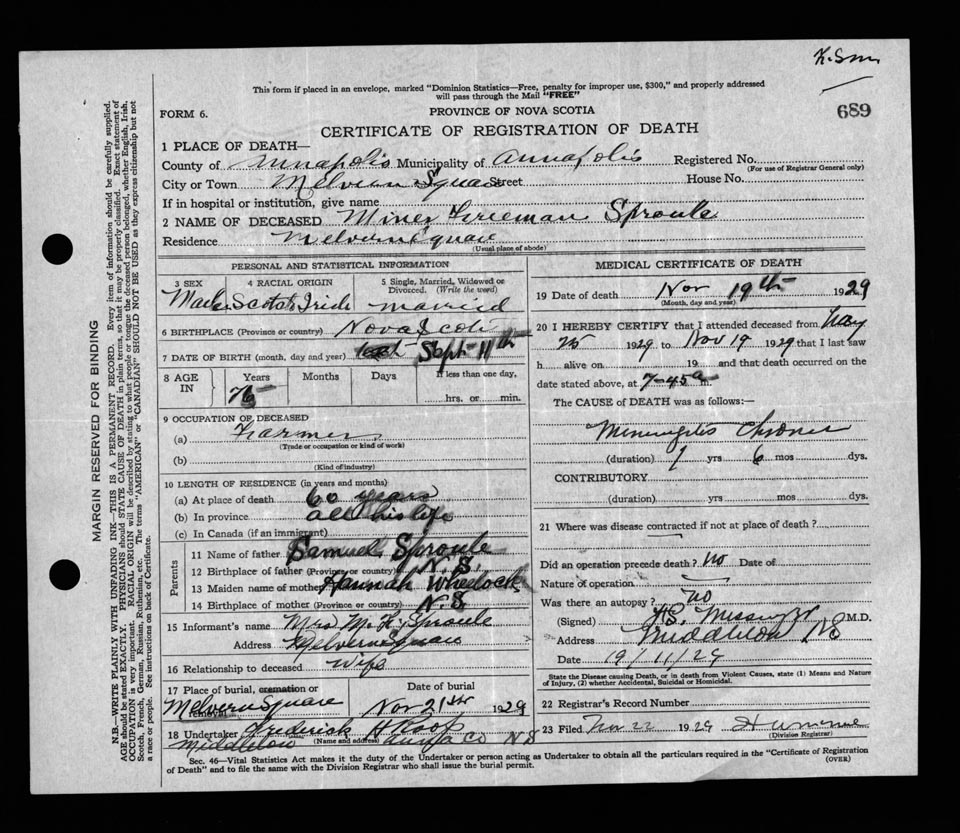 This form if placed in an envelope, marked "Dominion Statistics—Free, penalty for improper use, $300," and properly addressed
will pass through the Mail "FREE"
689
FORM 6.
PROVINCE OF NOVA SCOTIA
CERTIFICATE OF REGISTRATION OF DEATH
1 PLACE OF DEATH—
County of Annapolis Municipality of Annapolis Registered No.
(For use of Registrar General only)
City or Town Melvern Square Street House No.
If in hospital or institution, give name
2 NAME OF DECEASED Miner Freeman Sproule
Residence Melvern Square
(Usual place of abode)
PERSONAL AND STATISTICAL INFORMATION
3 SEX 4 RACIAL ORIGIN 5 Single, Married, Widowed or Divorced. (Write the word)
Male Scotch Irish married
6 BIRTHPLACE (Province or country) Nova Scotia
7 DATE OF BIRTH (month, day and year) Sept 11th
8 AGE IN Years Months Days If less than one day,
76 hrs. or min.
9 OCCUPATION OF DECEASED
(a) Farmer
(Trade or occupation or kind of work)
(b)
(Kind of industry)
10 LENGTH OF RESIDENCE (in years and months)
(a) At place of death 60 years
(b) In province all his life
(c) In Canada (if an immigrant)
Parents
11 Name of father Samuel Sproule
12 Birthplace of father (Province or country) N.S.
13 Maiden name of mother Hannah Wheelock
14 Birthplace of mother (Province or country) N.S.
15 Informant's name Mrs M. F. Sproule
Address Melvern Square
16 Relationship to deceased Wife
17 Place of burial, cremation or removal Date of burial
Melvern Square Nov 21st 1929
18 Undertaker Frederick
(Name and address)
Middleton Anna Co NS
MEDICAL CERTIFICATE OF DEATH
19 Date of death Nov 19th 1929
(Month, day and year)
20 I HEREBY CERTIFY that I attended deceased from
25 1929 to Nov 19 1929 that I last saw
h alive on 19 and that death occurred on the
date stated above, at 7-45 a m.
The CAUSE of DEATH was as follows:—
Meningitis Chronic
(duration) yrs 6 mos dys.
CONTRIBUTORY
(duration) yrs mos dys.
21 Where was disease contracted if not at place of death?
Did an operation precede death? no Date of
Nature of operation
Was there an autopsy? no
(Signed) Messenger M.D.
Address Middleton NS
Date 19/11/29
State the Disease causing Death, or in death from Violent Causes, state (1) Means and Nature of Injury, (2) whether Accidental, Suicidal or Homicidal.
22 Registrar's Record Number
23 Filed Nov 22 1929
(Division Registrar)
Sec. 46—Vital Statistics Act makes it the duty of the Undertaker or person acting as Undertaker to obtain all the particulars required in the "Certificate of Registration
of Death" and to file the same with the Division Registrar who shall issue the burial permit.
(OVER)
MARGIN RESERVED FOR BINDING
N.B.—WRITE PLAINLY WITH UNFADING INK—THIS IS A PERMANENT RECORD. Every item of information should be carefully supplied.
AGE should be stated EXACTLY. PHYSICIANS should STATE CAUSE OF DEATH in plain terms, so that it may be properly classified. Exact statement of
OCCUPATION is very important. RACIAL ORIGIN will be described by stating to what people or tongue the deceased person belonged, whether English, Irish,
Scotch, French, German, Russian, Ruthenian, etc. The terms "AMERICAN" or "CANADIAN" SHOULD NOT BE USED as they express citizenship but not
a race or people. See instructions on back of Certificate.